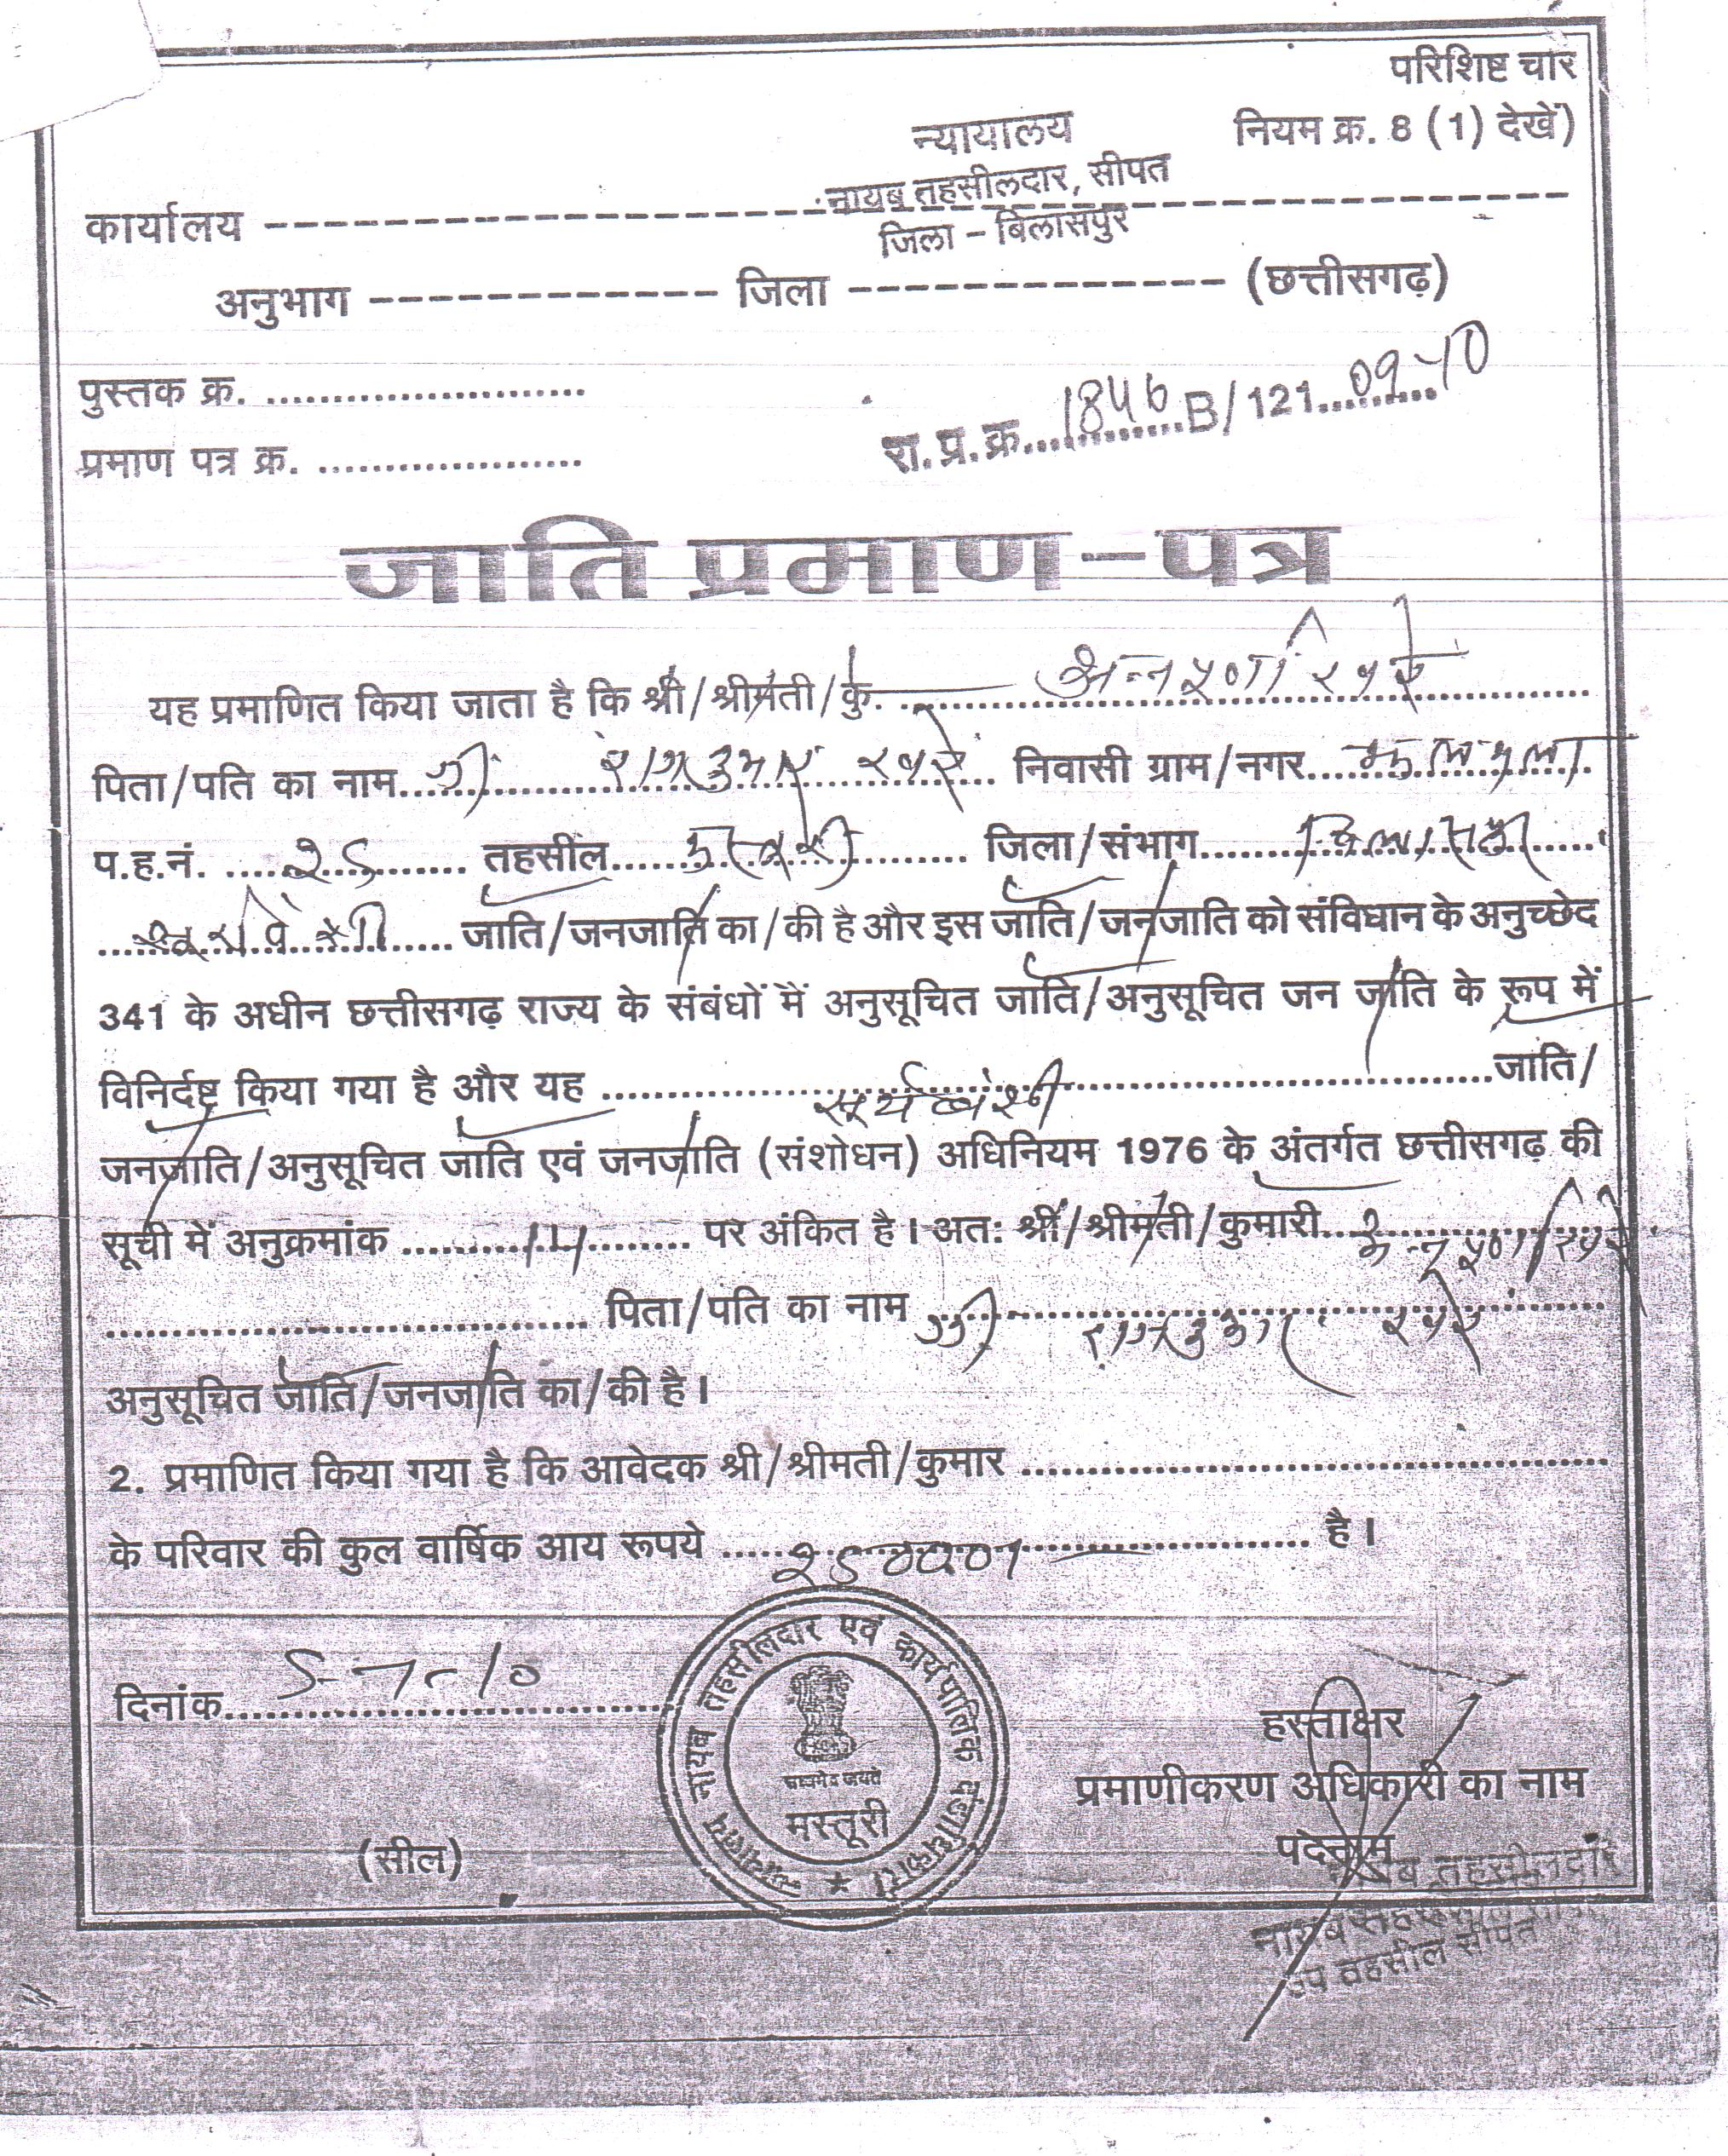 परिशिष्ट चार
नियम क्र. 8 (1) देखें)
न्यायालय
नायब तहसीलदार, सीपत
कार्यालय
जिला - बिलासपुर
अनुभाग ------------ जिला ------------- (छत्तीसगढ़)
पुस्तक क्र. ........................
प्रमाण पत्र क्र. ....................
रा.प्र.क्र....1846...B/121...09-10
जाति प्रमाण-पत्र
यह प्रमाणित किया जाता है कि श्री/श्रीमती/कु. अन्नपूर्णा खरे
पिता/पति का नाम श्री राजकुमार खरे निवासी ग्राम/नगर
प.ह.नं. 25 तहसील मस्तूरी जिला/संभाग बिलासपुर
जाति/जनजाति का/की है और इस जाति/जनजाति को संविधान के अनुच्छेद
341 के अधीन छत्तीसगढ़ राज्य के संबंधों में अनुसूचित जाति/अनुसूचित जन जाति के रूप में
विनिर्दष्ट किया गया है और यह सूर्यवंशी जाति/
जनजाति/अनुसूचित जाति एवं जनजाति (संशोधन) अधिनियम 1976 के अंतर्गत छत्तीसगढ़ की
सूची में अनुक्रमांक 14 पर अंकित है। अतः श्री/श्रीमती/कुमारी अन्नपूर्णा खरे
पिता/पति का नाम श्री राजकुमार खरे
अनुसूचित जाति/जनजाति का/की है।
2. प्रमाणित किया गया है कि आवेदक श्री/श्रीमती/कुमार
के परिवार की कुल वार्षिक आय रूपये 25000/- है।
दिनांक 5-7-10
न्यायालय नायब तहसीलदार एवं कार्यपालिक दंडाधिकारी
सत्यमेव जयते
मस्तूरी
हस्ताक्षर
प्रमाणीकरण अधिकारी का नाम
पदनाम
(सील)
नायब तहसीलदार
उप तहसील सीपत